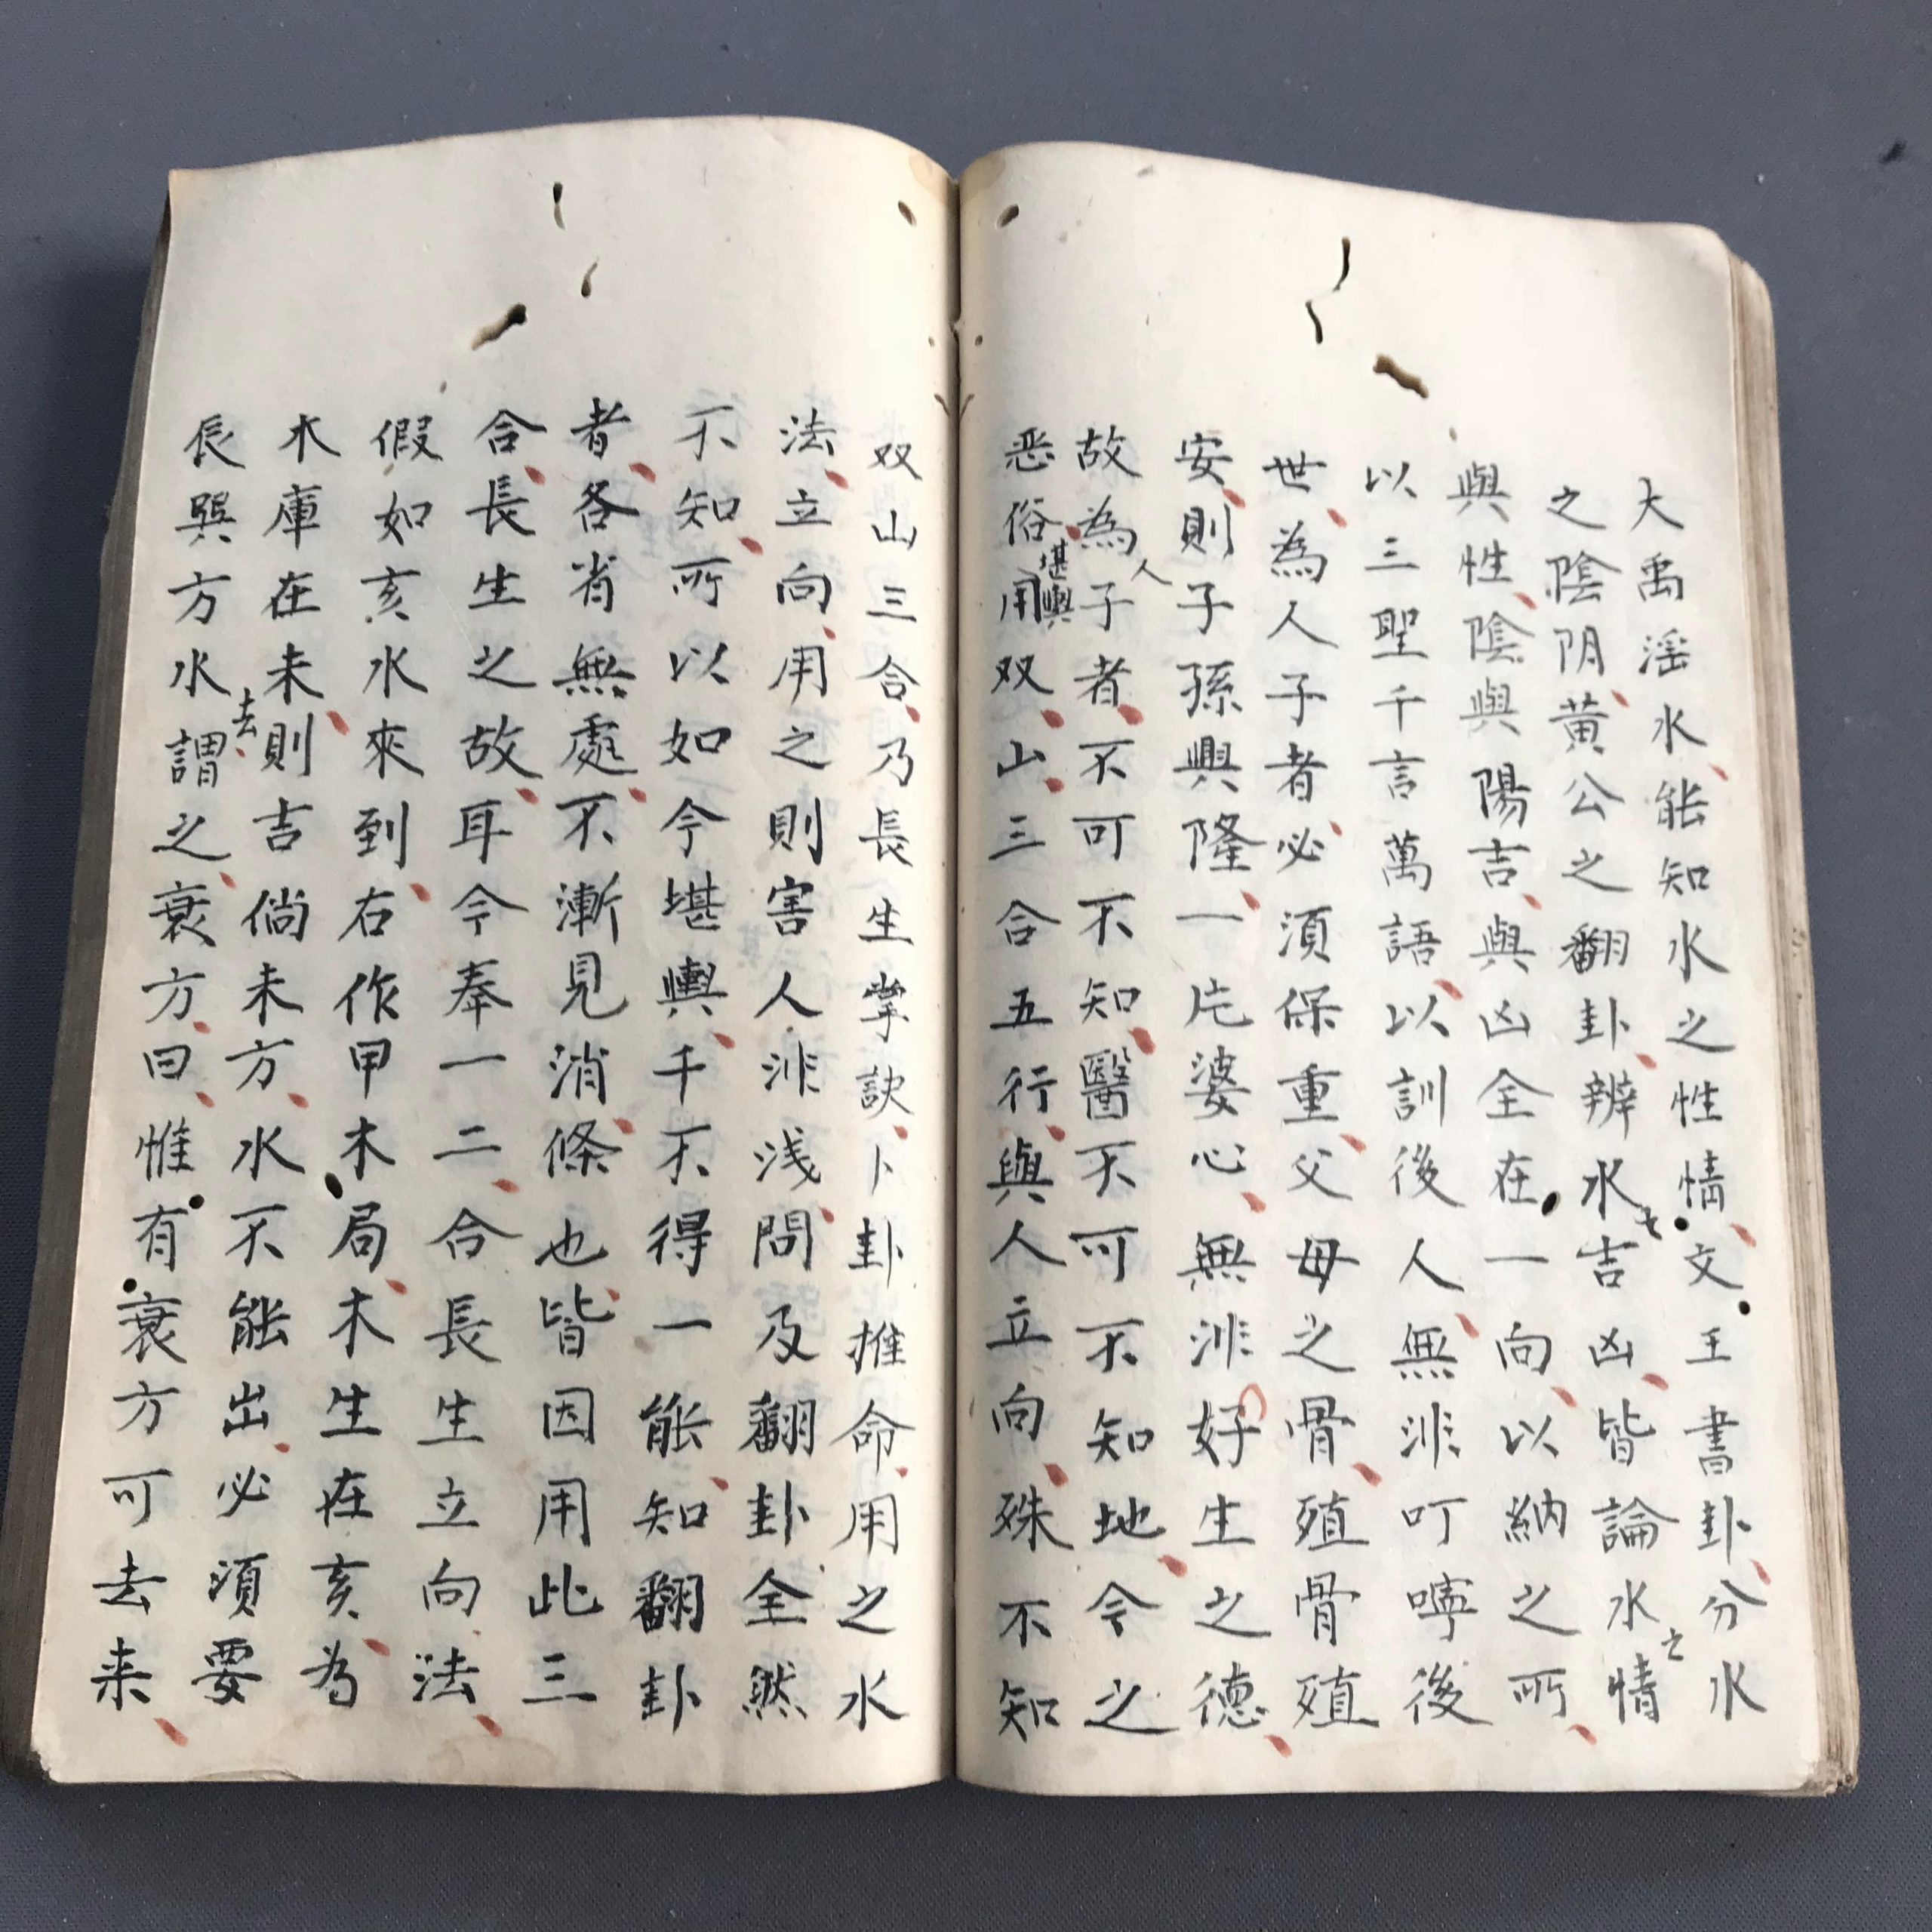 大禹滛水能知水之性情文王書卦分水
之陰阴黄公之翻卦辨水吉凶皆論水之情
與性陰與陽吉與凶全在一向以納之所
以三聖千言萬語以訓後人無非叮嚀後
世為人子者必須保重父母之骨殖骨殖
安則子孫興隆一片婆心無非好生之德
故為人子者不可不知醫不可不知地今之
恶俗堪輿用双山三合五行與人立向殊不知
双山三合乃長生掌訣卜卦推命用之水
法立向用之則害人非浅問及翻卦全然
不知所以如今堪輿千不得一能知翻卦
者各省無處不漸見消條也皆因用此三
合長生之故耳今奉一二合長生立向法
假如亥水來到右作甲木局木生在亥為
木庫在未則吉倘未方水不能出必須要
辰巽方水去謂之衰方曰惟有衰方可去来